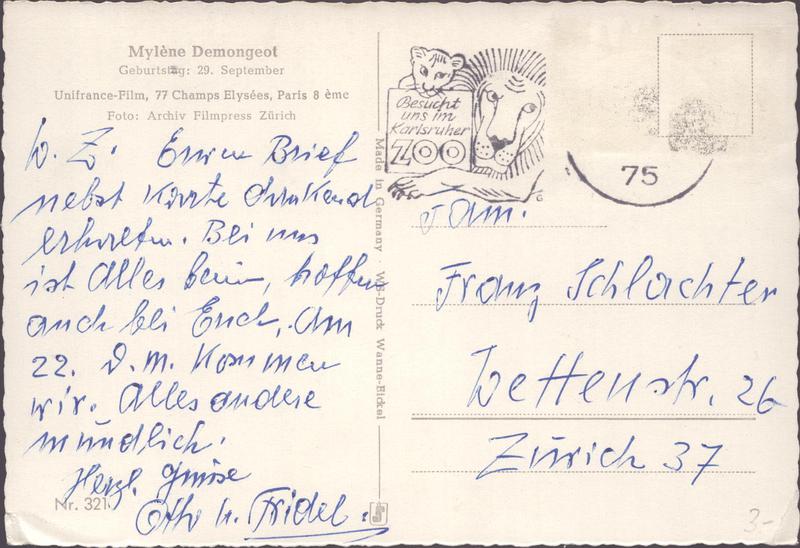 Mylène Demongeot
Geburtstag: 29. September
Unifrance-Film, 77 Champs Elysées, Paris 8 ème
Foto: Archiv Filmpress Zürich
W. Z. Euren Brief
nebst Karte dankend
erhalten. Bei uns
ist Alles beim, hoffen
auch bei Euch. Am
22. d. M. kommen
wir. Alles andere
mündlich.
Herzl. Grüsse
Otto u. Fridel.
Nr. 321
Made in Germany WS-Druck Wanne-Eickel
Besucht
uns im
Karlsruher
ZOO
75
Fam.
Franz Schlachter
Wettenstr. 26
Zürich 37
3-